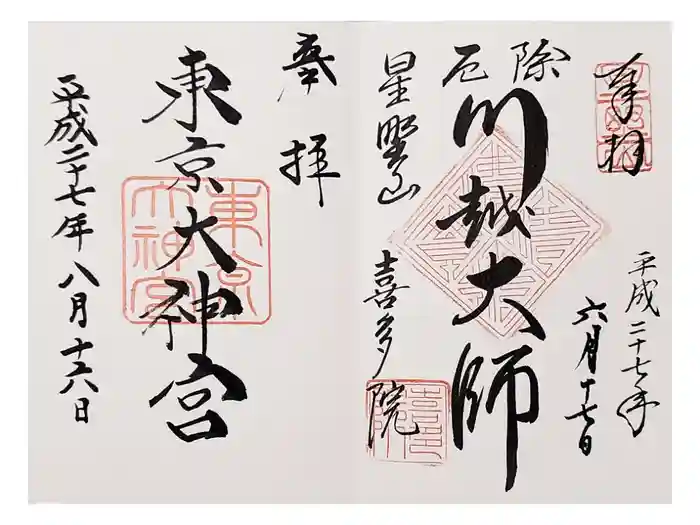 奉拝
平成二十七年
六月十七日
除厄
川越大師
星野山
喜多院
喜多院
奉拝
東京大神宮
東京大神宮
平成二十七年八月十六日